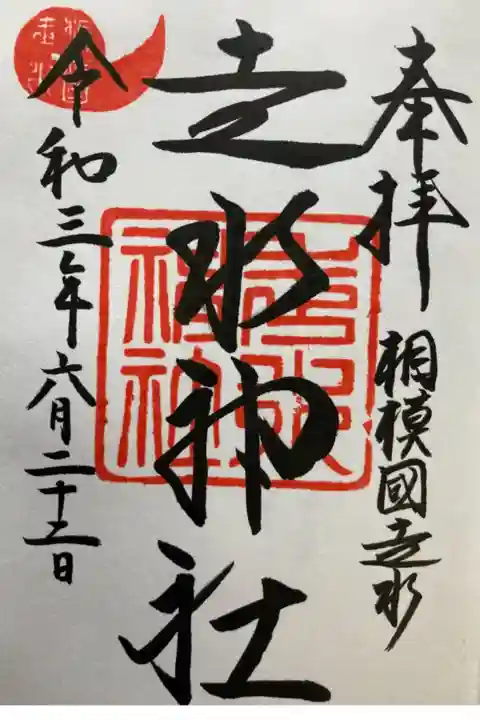 奉拝
相模國走水
走水神社
令和三年六月二十三日
走水
神社